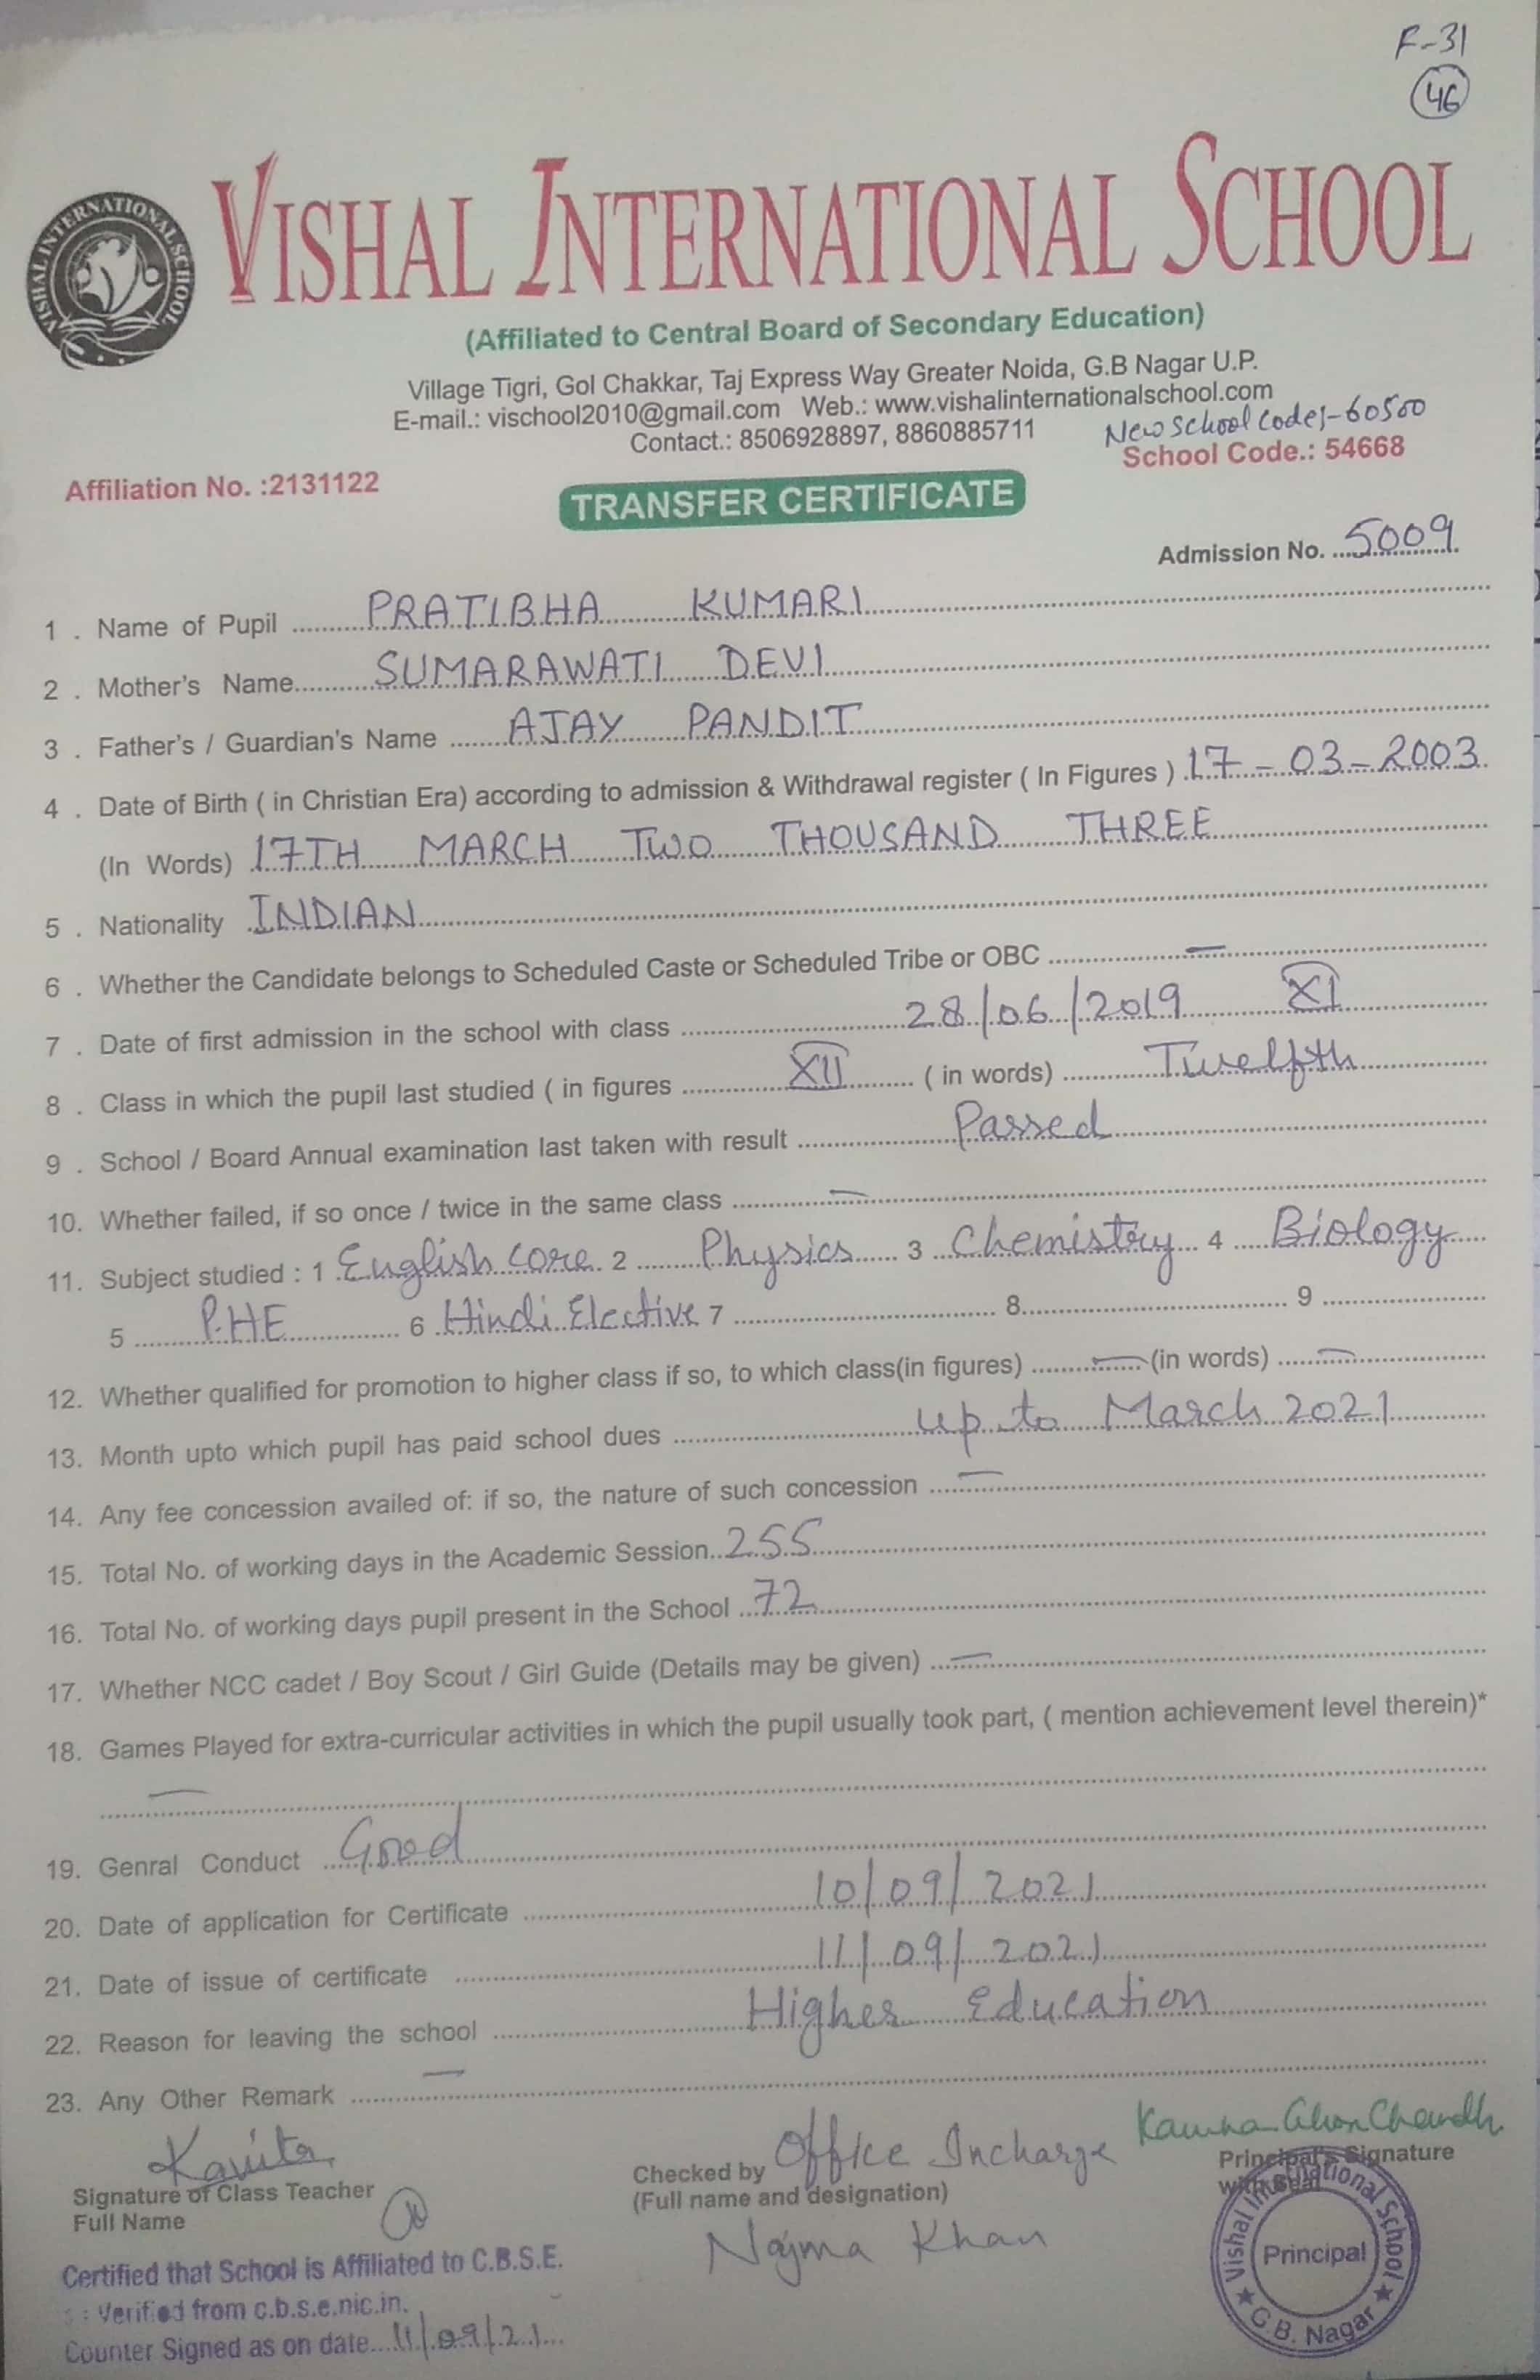 F-31
46
VISHAL INTERNATIONAL SCHOOL
VISHAL INTERNATIONAL SCHOOL
(Affiliated to Central Board of Secondary Education)
Village Tigri, Gol Chakkar, Taj Express Way Greater Noida, G.B Nagar U.P.
E-mail.: vischool2010@gmail.com Web.: www.vishalinternationalschool.com
Contact.: 8506928897, 8860885711 New School Code:-60500
Affiliation No. :2131122 School Code.: 54668
TRANSFER CERTIFICATE
Admission No. 5009
1 . Name of Pupil PRATIBHA KUMARI
2 . Mother's Name SUMARAWATI DEVI
3 . Father's / Guardian's Name AJAY PANDIT
4 . Date of Birth ( in Christian Era) according to admission & Withdrawal register ( In Figures ) 17-03-2003
(In Words) 17TH MARCH TWO THOUSAND THREE
5 . Nationality INDIAN
6 . Whether the Candidate belongs to Scheduled Caste or Scheduled Tribe or OBC —
7 . Date of first admission in the school with class 28/06/2019 XI
8 . Class in which the pupil last studied ( in figures XII ( in words) Twelfth
9 . School / Board Annual examination last taken with result Passed
10. Whether failed, if so once / twice in the same class —
11. Subject studied : 1 English core 2 Physics 3 Chemistry 4 Biology
5 P.HE 6 Hindi Elective 7 8 9
12. Whether qualified for promotion to higher class if so, to which class(in figures) — (in words) —
13. Month upto which pupil has paid school dues up to March 2021
14. Any fee concession availed of: if so, the nature of such concession —
15. Total No. of working days in the Academic Session 255
16. Total No. of working days pupil present in the School 72
17. Whether NCC cadet / Boy Scout / Girl Guide (Details may be given) —
18. Games Played for extra-curricular activities in which the pupil usually took part, ( mention achievement level therein)*
—
19. Genral Conduct Good
20. Date of application for Certificate 10/09/2021
21. Date of issue of certificate 11/09/2021
22. Reason for leaving the school Higher Education
23. Any Other Remark —
Kavita
Signature of Class Teacher
Full Name
Checked by Office Incharge
(Full name and designation)
Najma Khan
Principal's Signature
with Seal
Vishal International School
Principal
G.B. Nagar
Certified that School is Affiliated to C.B.S.E.
Verified from c.b.s.e.nic.in.
Counter Signed as on date 11/09/21